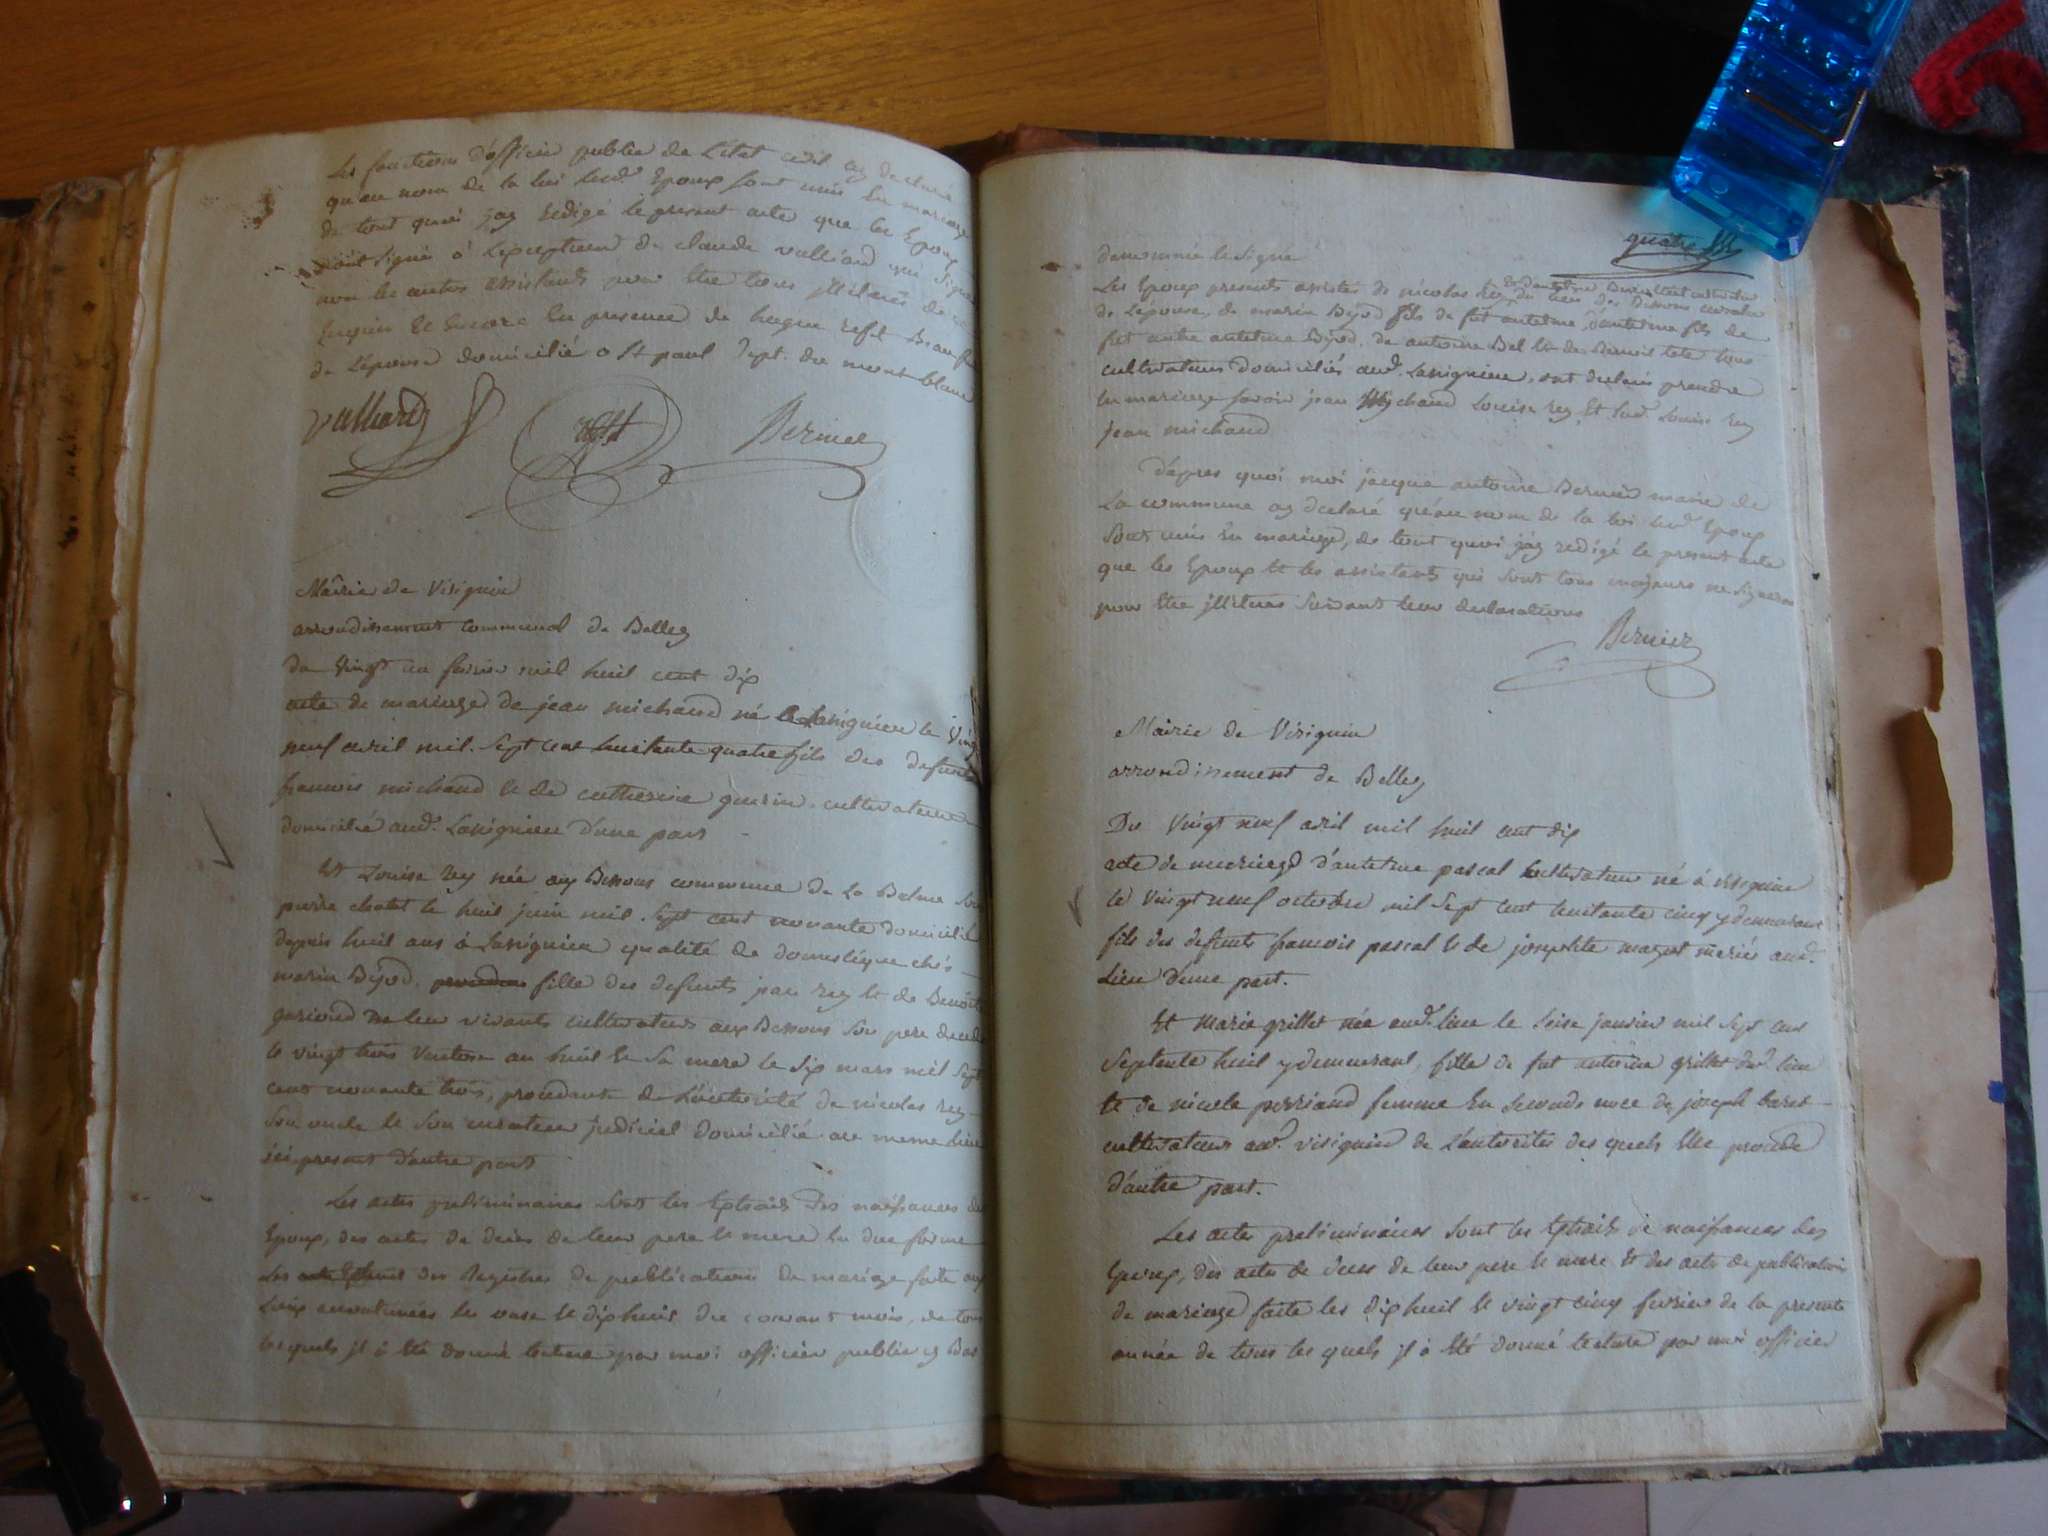 Les fonctions d'officier public de L'etat civil ay declaré
qu'au nom de la loi lesd. Epoux sont unis En mariage
de tout quoi j'ay Redigé le present acte que les Epoux
ont signés à L'exception de claude vulliard qui signe
non les autres assistants pour être tous jllitérés de ce
Enquis Et Encore En presence de hugue
de L'épouse domicilié a St paul Dept. du mont blanc
Vulliard Bernier
Mairie de Virignin
arrondissement communal de Belley
du Vingt un fevrier mil huit cent dix
acte de mariage de jean michaud né a Lassignieu le Vingt
neuf avril mil sept cent huitante quatre fils des defunts
francois michaud et de catherine guerin cultivateur
domicilié aud. Lassignieu d'une part
Et Louise rey née aux Bessons commune de La Balme sur
pierre chatel le huit juin mil sept cent nonante domicilié
depuis huit ans à Lassignieu qualité de domestique chés
marin Bijod, fille des defunts jean rey et de Benoite
garioud de leur vivants cultivateurs aux Bessons son pere decedé
le vingt trois Ventose an huit Et sa mere le six mars mil sept
cent nonante trois, procedante de L'autorité de nicolas rey
son oncle et son curateur judiciel domicilié au meme lieu
ici present d'autre part
Les actes preliminaires sont les Extraits Des naissances des
Epoux, des actes de deces de leur pere et mere En due forme
Les Extraits des Registres de publications de mariage faite aux
Lieux accoutumées les onze et dix huit du courant mois, de tous
les quels jl à été donné lecture par moi officier public
quatre
denommé le signé
Les Epoux presents assistés de nicolas rey du lieu des Bessons curateur
de L'épouse, de marin Bijod fils de fut anterme, d'anterme fils de
fut autre anterme Bijod, de antoine Bel Et de Benoit tete tous
cultivateurs domiciliés aud. Lassignieu, ont declaré prendre
En mariage savoir jean Michaud Louise rey Et lad. Louise rey
jean michaud
D'apres quoi moi jacque antoine Bernier maire de
La commune ay declaré qu'au nom de la loi lesd. Epoux
sont unis En mariage, de tout quoi j'ay redigé le present acte
que les Epoux Et les assistants qui sont tous majeurs ne signeron
pour être jlliteres suivant leur declarations
Bernier
Mairie de Virignin
arrondissement de Belley
Du Vingt neuf avril mil huit cent dix
acte de mariage d'anterme pascal cultivateur né à virignin
le Vingt neuf octobre mil sept cent huitante cinq y demeurant
fils des defunts francois pascal et de josephte mariés aud.
Lieu d'une part.
Et Marie grillet née aud. lieu le seise janvier mil sept cent
septente huit y demeurant, fille de fut antoine grillet dud. lieu
Et de nicole perriand femme En seconde noce de joseph baret
cultivateurs aud. virignin de L'autorités des quels Elle procede
d'autre part.
Les actes preliminaires sont les Extraits de naissances des
Epoux, des actes de deces de leur pere et mere Et des acte de publication
de mariage faite les dix huit et vingt cinq fevrier de la presente
année de tous les quels jl à été donné lecture par moi officier